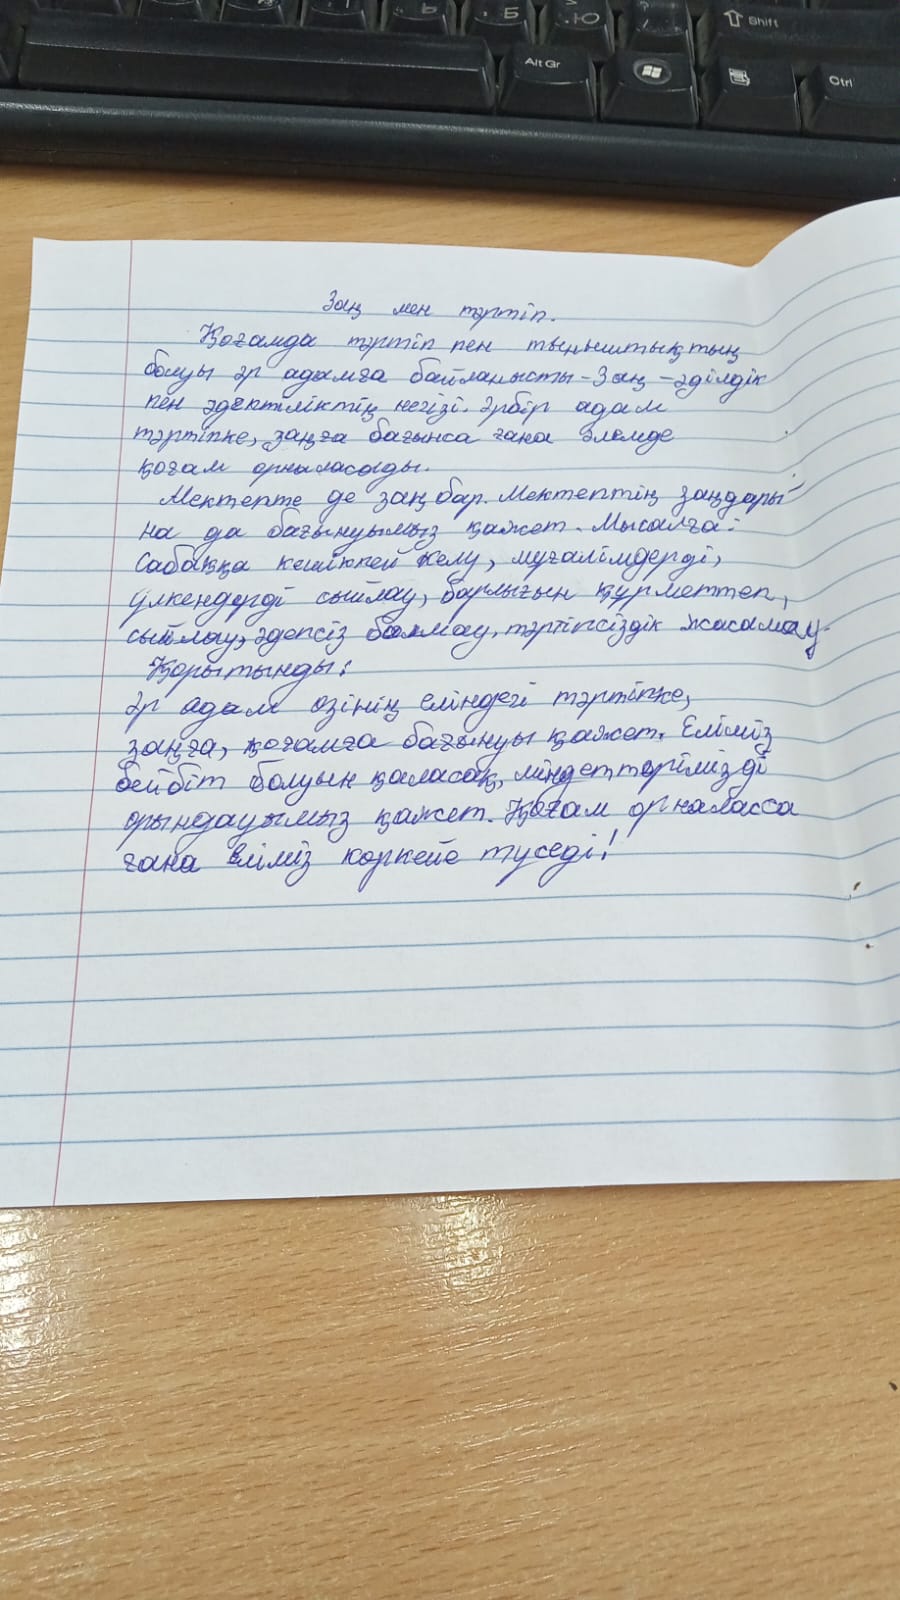 Ь Б Ю Shift
Alt Gr Ctrl
Заң мен тәртіп.
Қоғамда тәртіп пен тыныштықтың
болуы әр адамға байланысты-Заң-әділдік
пен әдептіліктің негізі. Әрбір адам
тәртіпке, заңға бағынса ғана әлемде
қоғам орналасады.
Мектепте де заң бар. Мектептің заңдары-
на да бағынуымыз қажет. Мысалға:
Сабаққа кешікпей келу, мұғалімдерді,
үлкендерді сыйлау, барлығын құрметтеп,
сыйлау, әдепсіз болмау, тәртіпсіздік жасамау.
Қорытынды:
Әр адам өзінің еліндегі тәртіпке,
заңға, қоғамға бағынуы қажет. Еліміз
бейбіт болуын қаласақ, міндеттерімізді
орындауымыз қажет. Қоғам орналасса
ғана еліміз көркейе түседі!